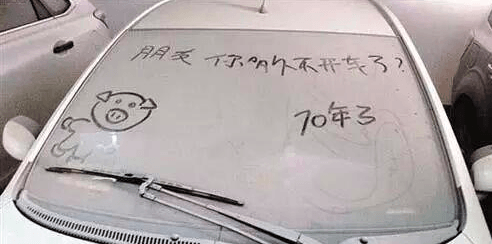 朋友 你多久不开车了?
70年了